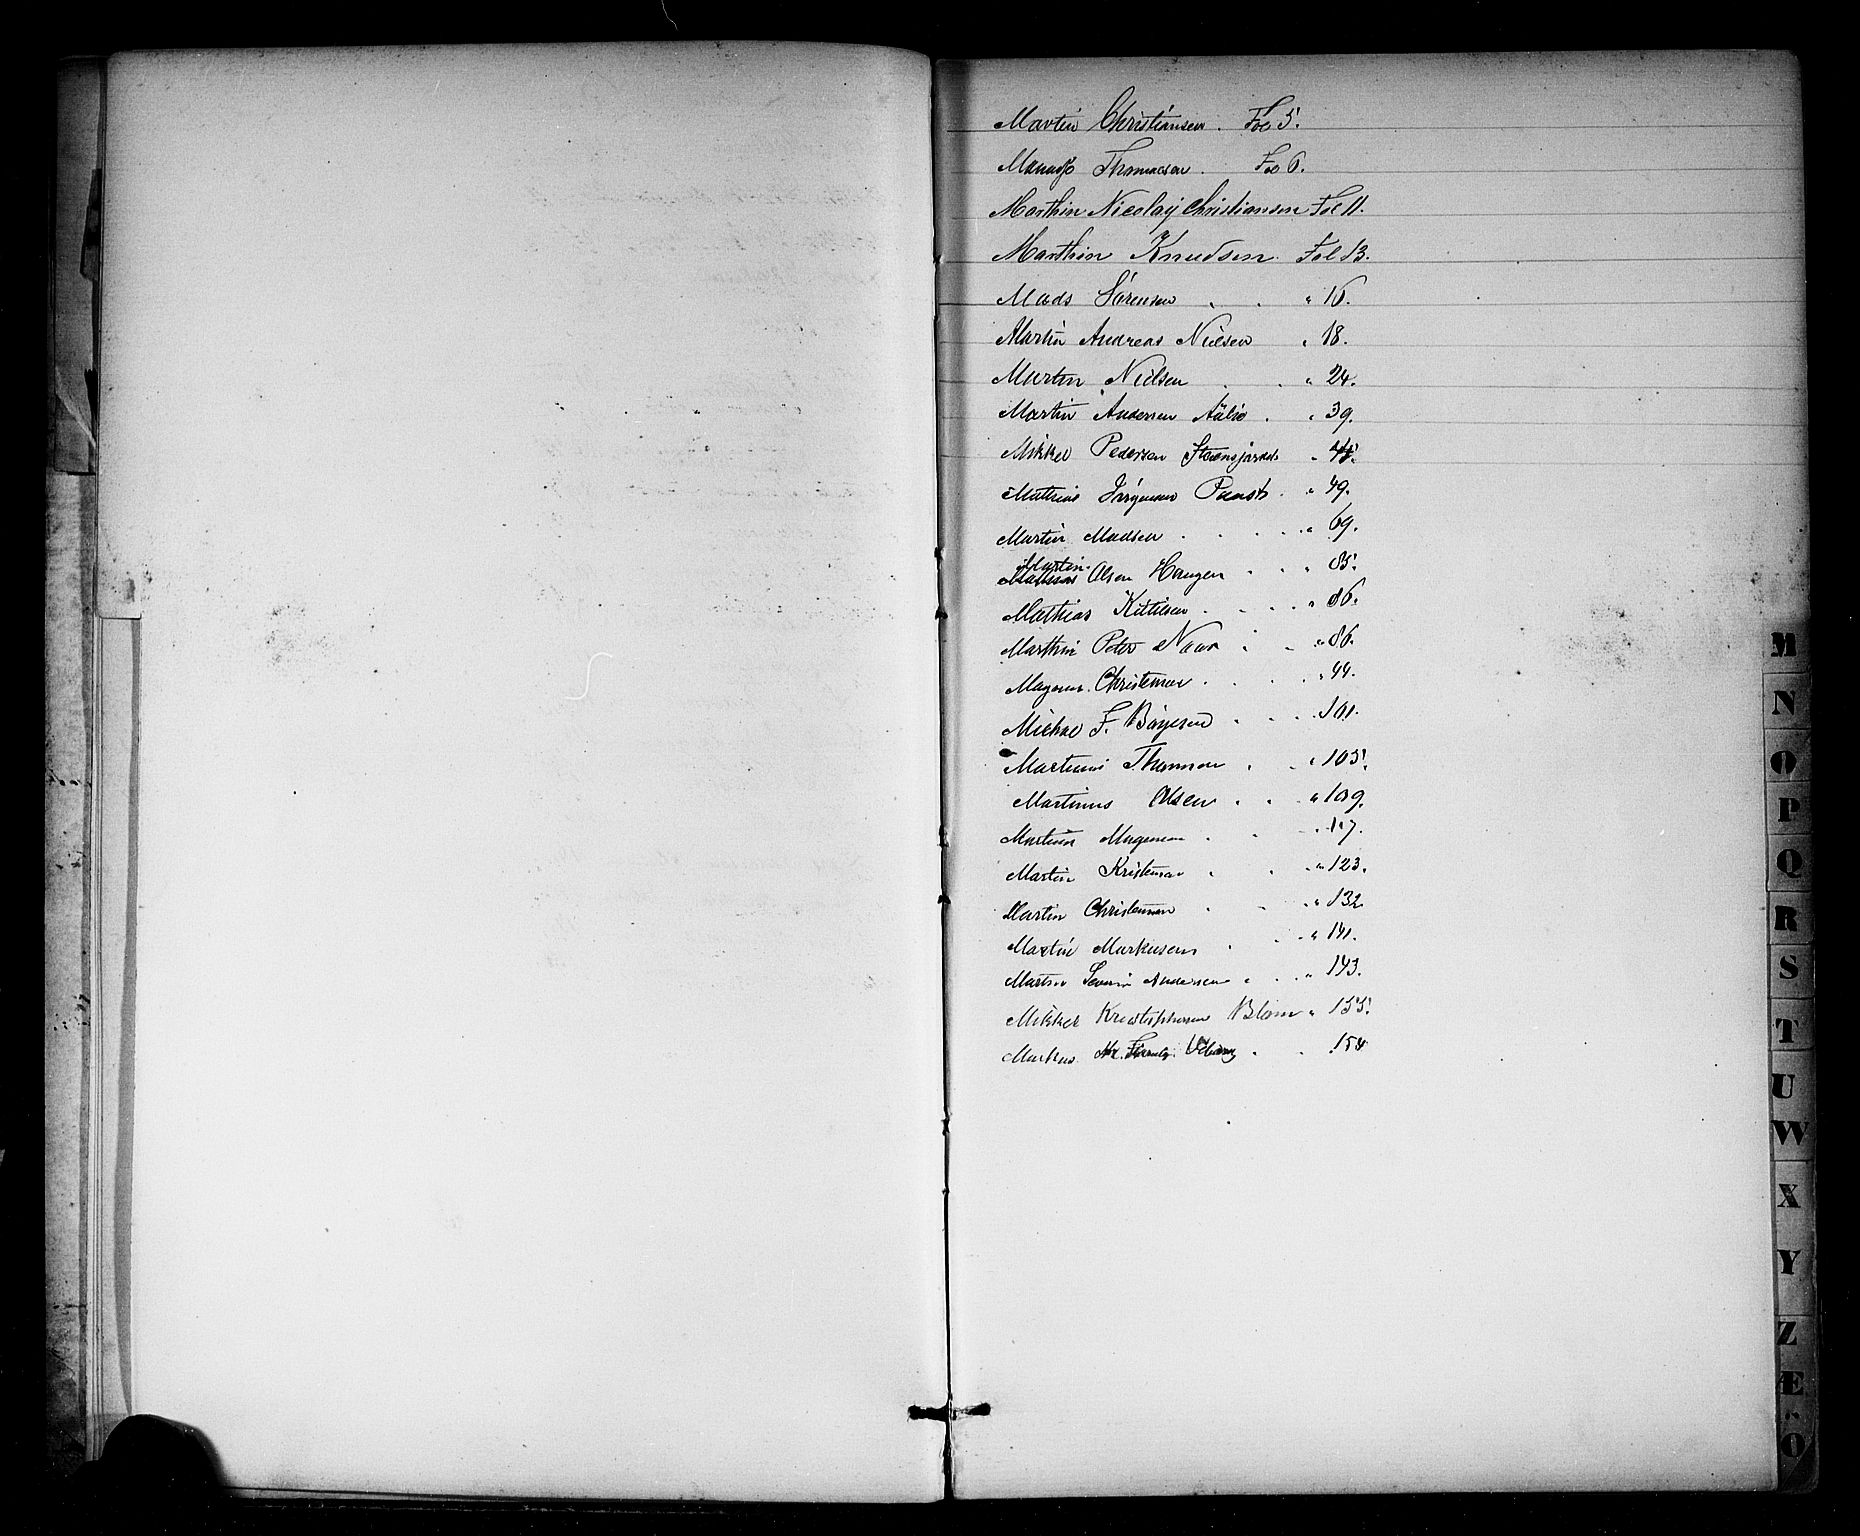 Martin Christiansen . Fol 5.
Thomassen . Fol 6.
Marthin Nicolaij Christiansen Fol 11.
Marthin Knudsen . Fol 13.
Mads Sørensen . . " 16.
Martin Andreas Nielsen " 18.
Martin Nielsen . . " 24.
Martin Andersen . " 39.
Mikkel Pedersen "
Mathias Jørgensen . " 49.
Martin Madsen . . . . . " 69.
Martin
Olsen Haugen . . . " 85.
Mathias Kittilsen . . . . " 86.
Marthin Peter . . " 86.
Magnus Christensen . . . . " 44.
F. Bøyesen . . . . 101.
Thomsen . . " 105.
Martinus Olsen . . . " 109.
Magnussen . . . " 117.
Martin Kristensen . . . " 123.
Martin Christensen . . . " 132
Martin Markusen . . . " 141.
Martin Severin Andersen . . . " 143.
Mikkel Kristophersen Blom " 155.
Markus . . . 154
M
N
O
P
Q
R
S
T
U
W
X
Y
Z
Æ
Ö